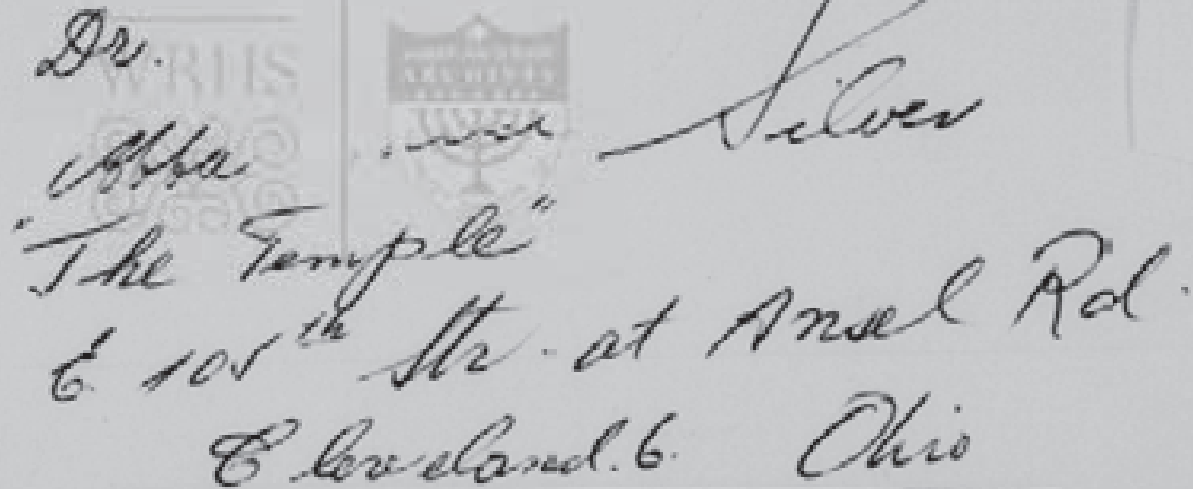 Dr.
Abba Silver
"The Temple"
E. 105th Str. at Ansel Rd.
Cleveland. 6. Ohio
WRHS
ARCHIVES